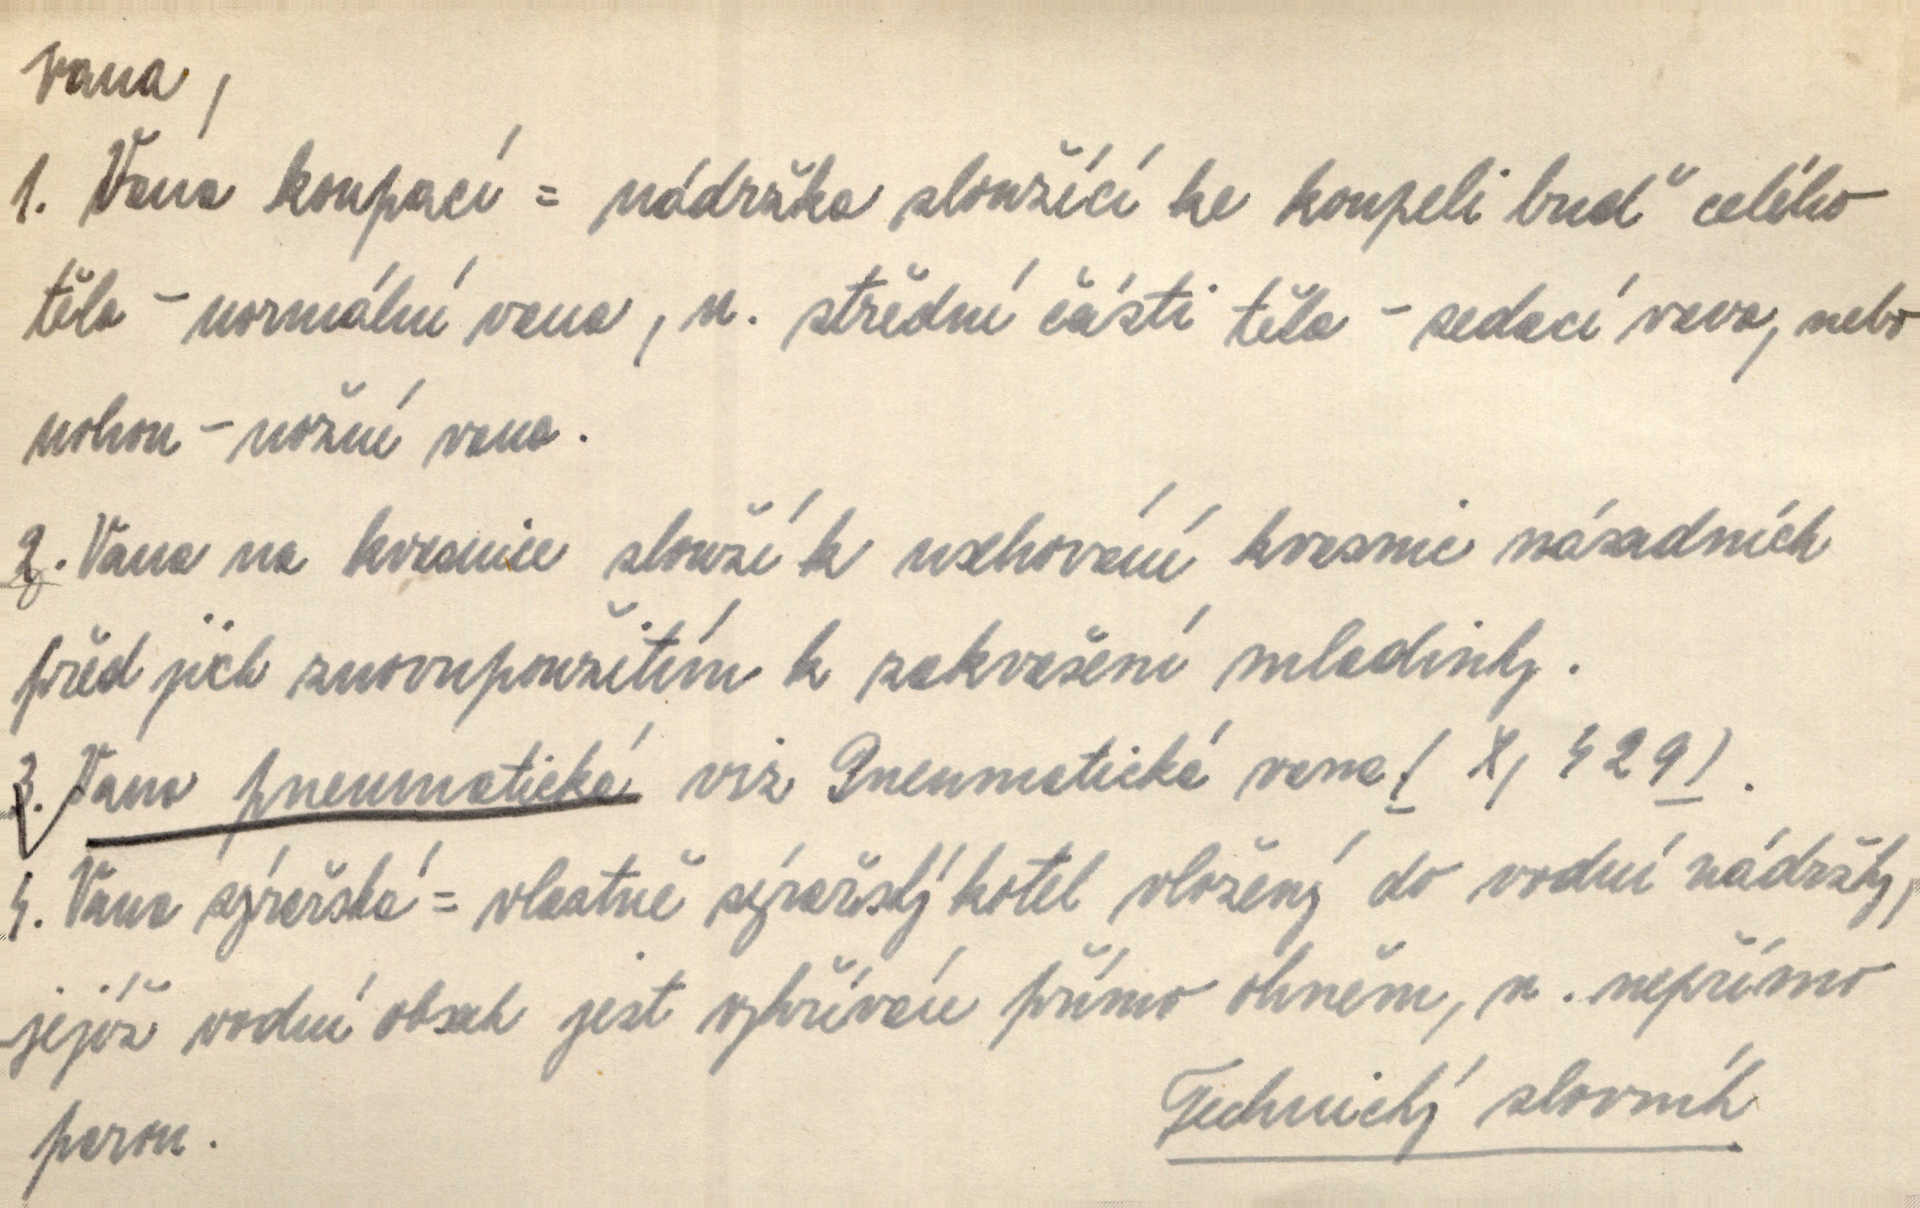 vana,
1. Vana koupací = nádržka sloužící ke koupeli buď celého
těla - normální vana, n. střední části těla - sedací vana, nebo
nohou - nožní vana.
2. Vana na kvasnice slouží k uschování kvasnic násadních
před jich znovupoužitím k zakvašení mladinky.
3. Vana pneumatická viz Pneumatická vana ( X, 429 ).
4. Vana sýrařská = vlastně sýrařský kotel vložený do vodní nádržky,
jejíž vodní obsah jest vyhříván přímo ohněm, n. nepřímo
parou.
Technický slovník